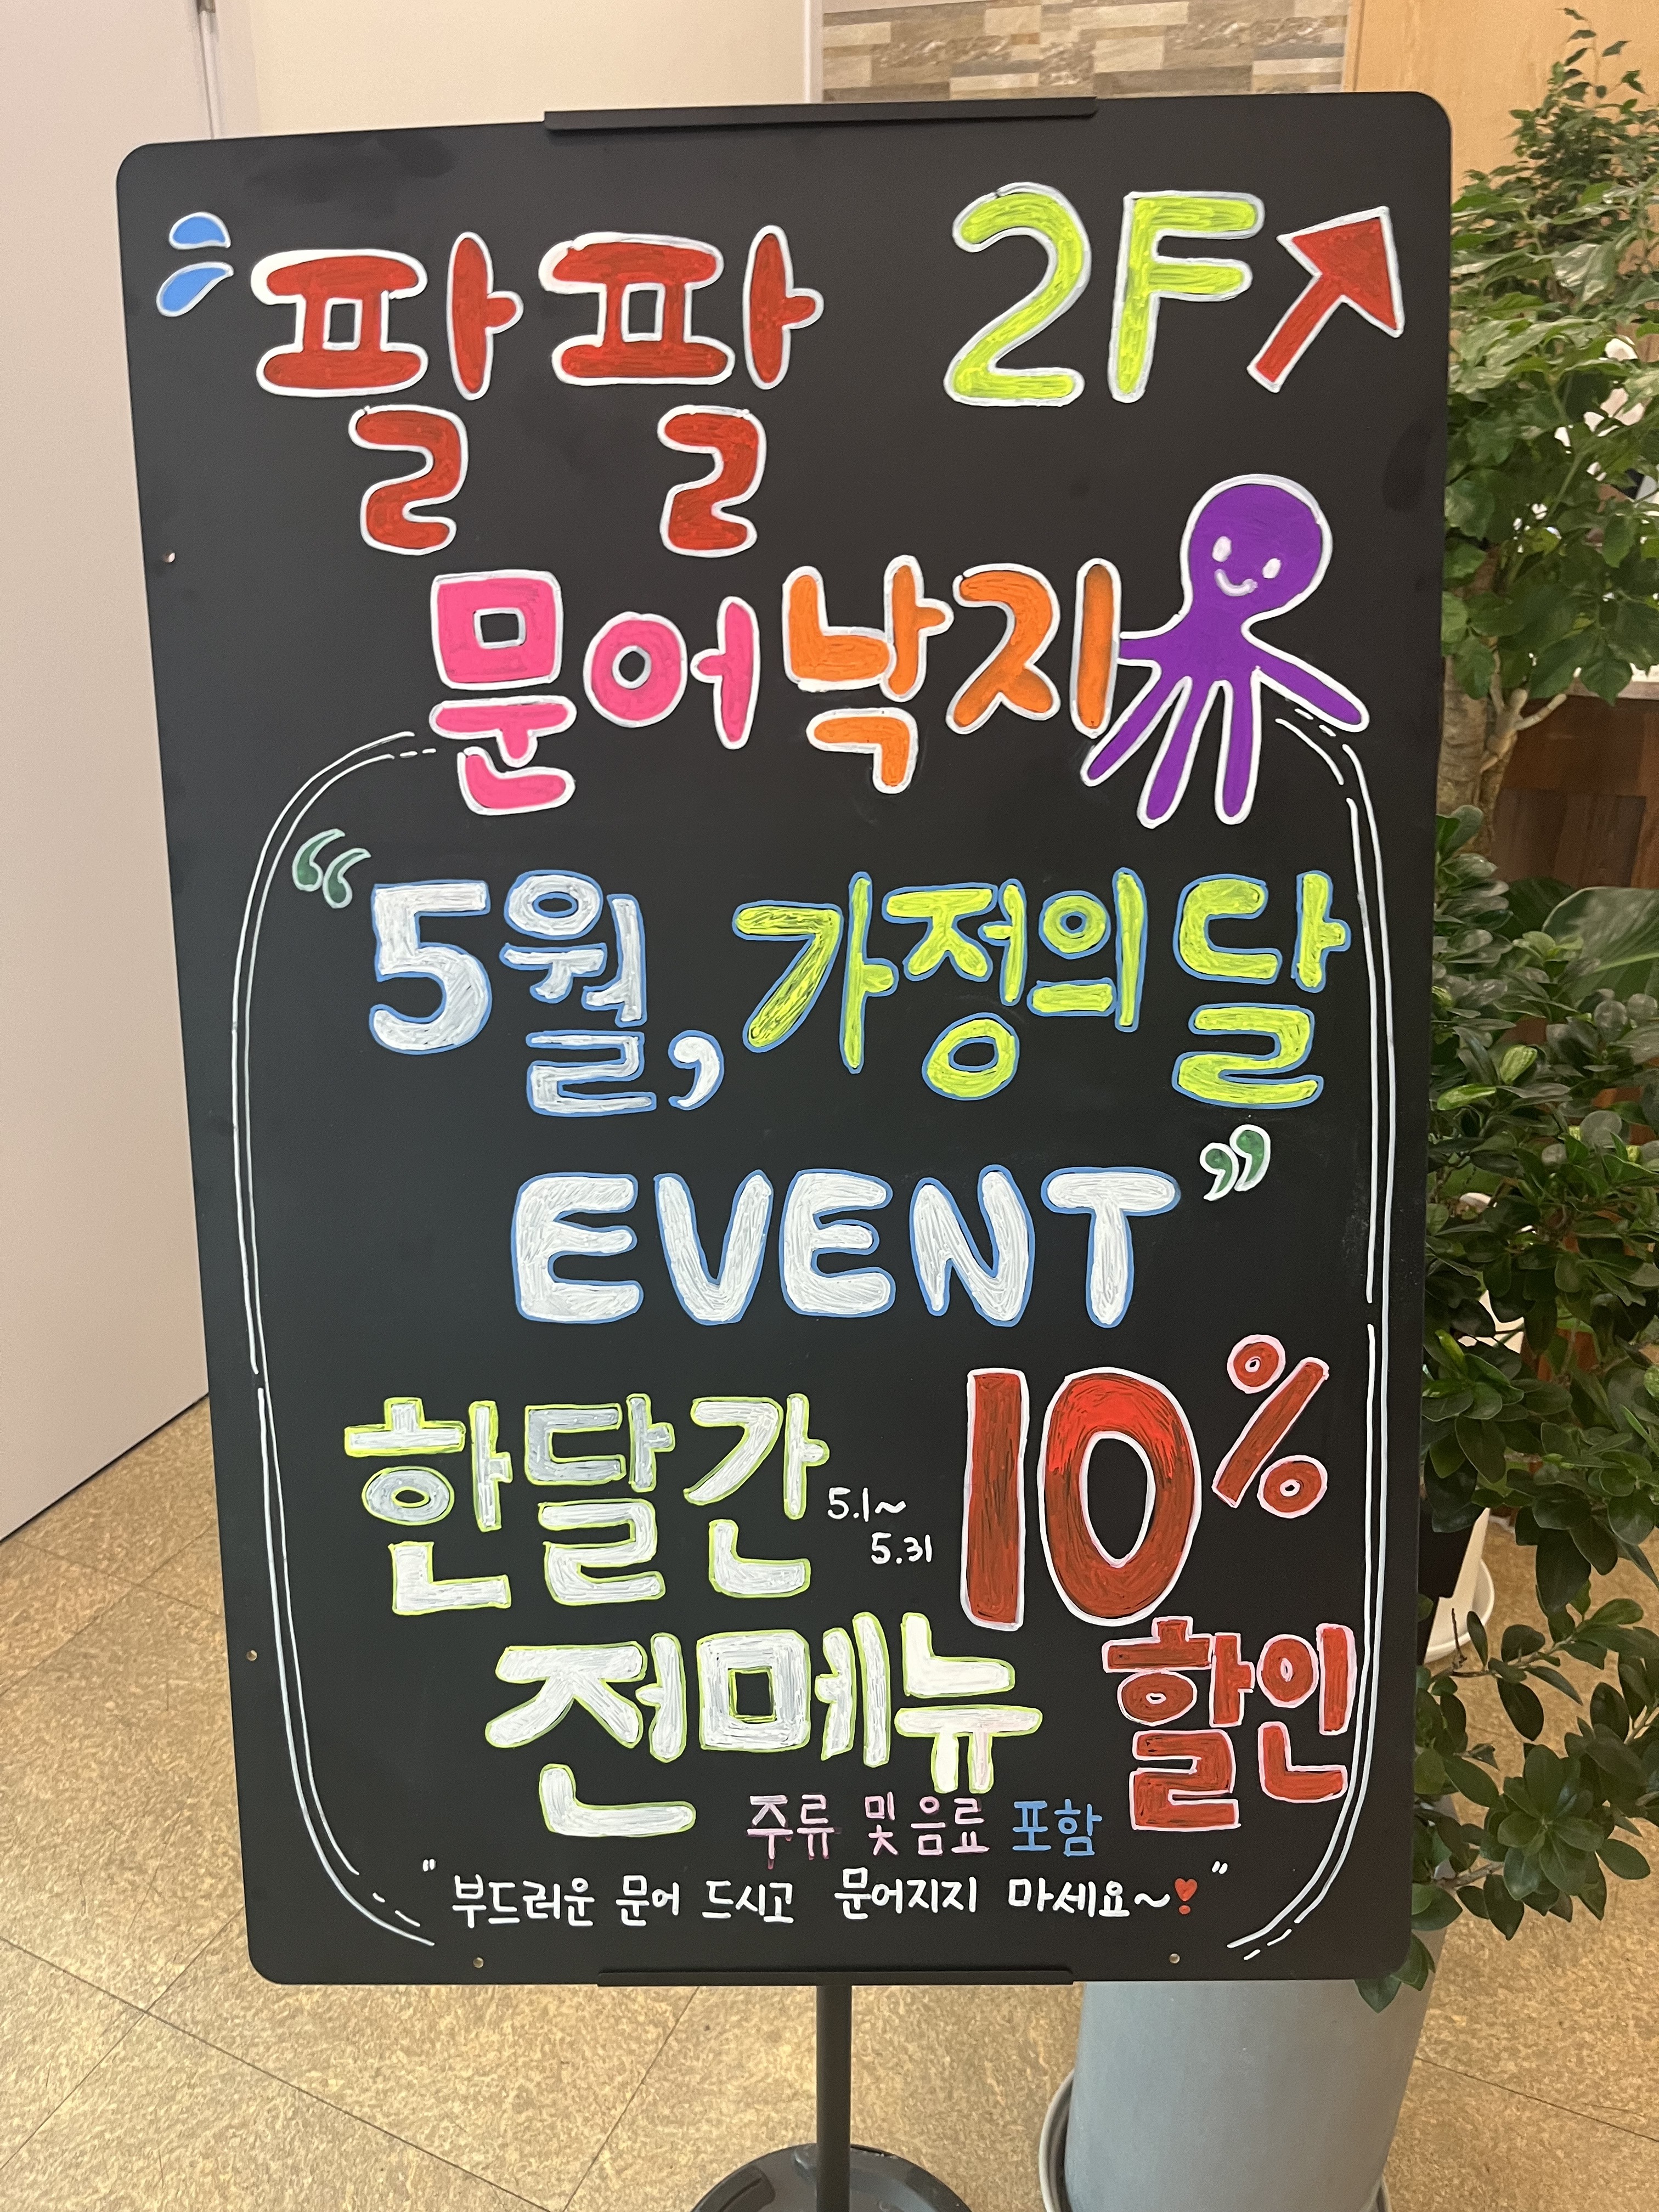 팔팔 2F
문어낙지
“5월, 가정의달
EVENT”
한달간 5.1~ 5.31 10%
전메뉴 할인
주류 및 음료 포함
"부드러운 문어 드시고 문어지지 마세요~"